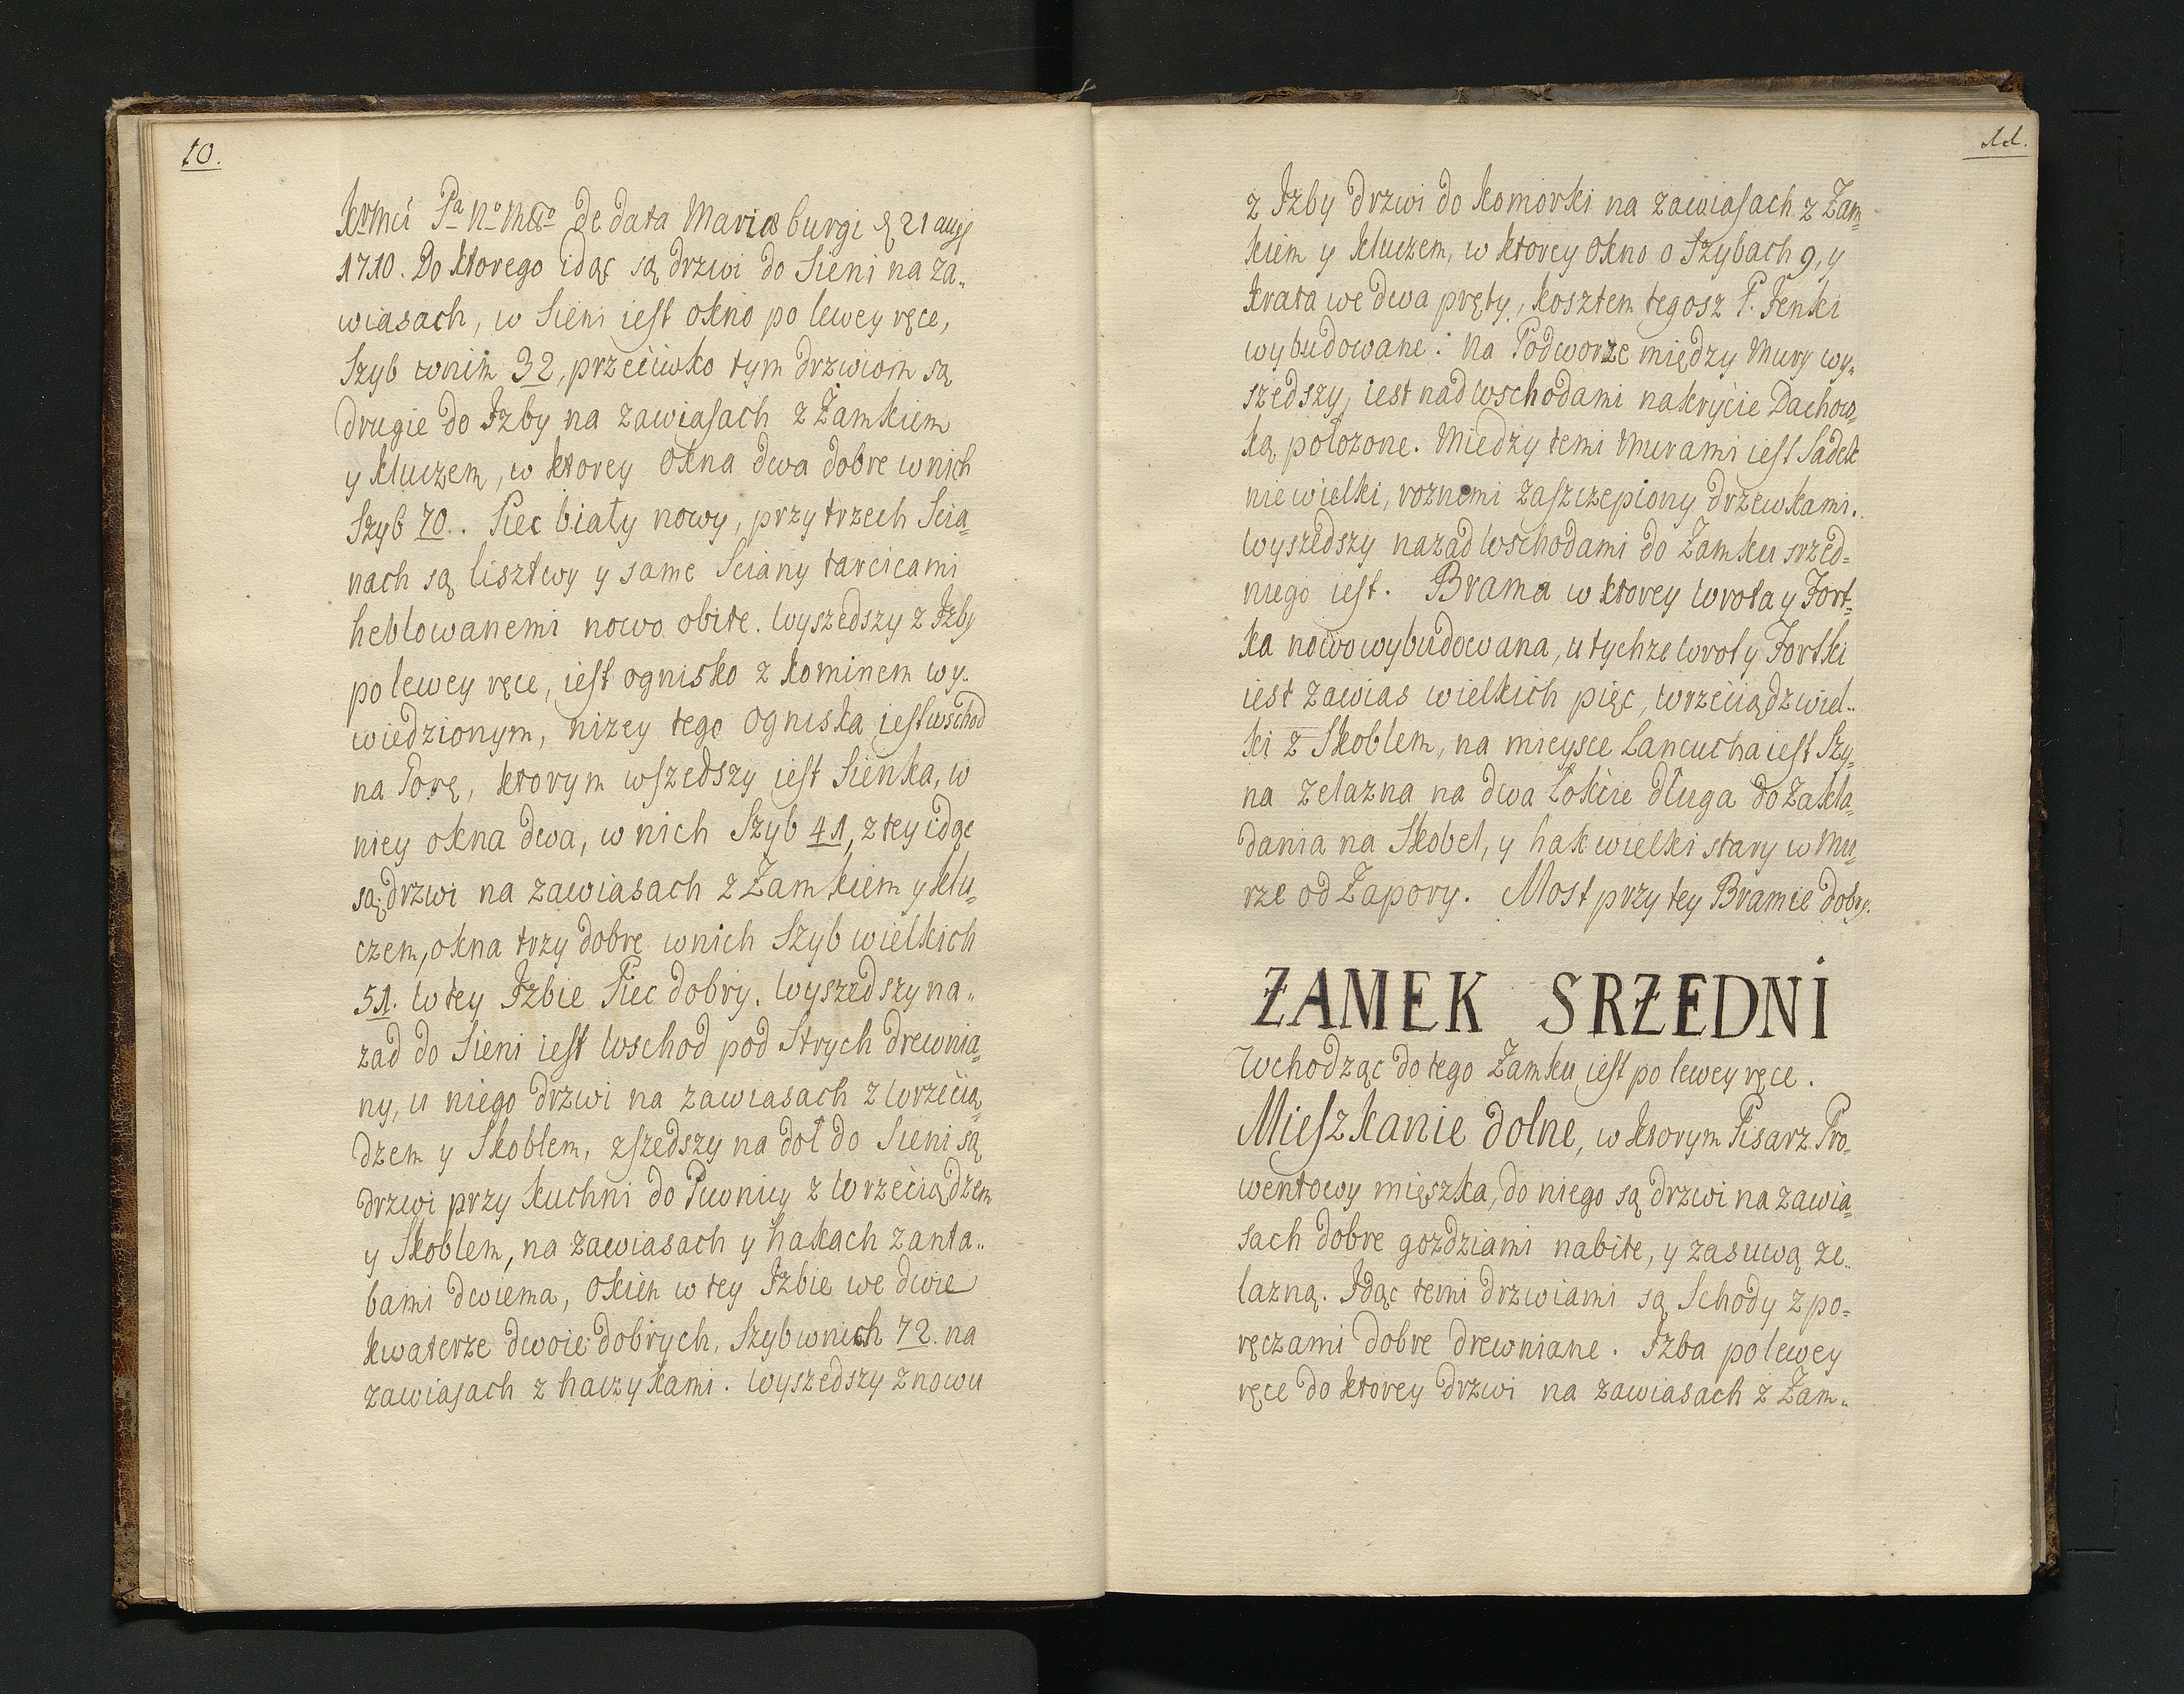 10.
KrMci Pa No Mgo de data Mariæburgi d 21 aug
1710. Do ktorego idąc są drzwi do Sieni na za„
wiasach, w Sieni iest okno po lewey ręce,
Szyb wnim 32, przeciwko tym drzwiom są
drugie do Izby na zawiasach z Zamkiem
y kluczem, w ktorey okna dwa dobre wnich
Szyb 70. Piec biały nowy, przy trzech Scia=
nach są lisztwy y same Sciany tarcicami
heblowanemi nowo obite. Wyszedszy z Izby
po lewey ręce, iest ognisko z kominem wy-
wiedzionym, nizey tego Ogniska iest wschod
na Gorę, ktorym wszedszy iest Sienka, w
niey okna dwa, w nich Szyb 41, z tey idąc
są drzwi na zawiasach z Zamkiem y klu=
czem, okna trzy dobre wnich Szyb wielkich
51. W tey Izbie Piec dobry. Wyszedszy na„
zad do Sieni iest Wschod pod Strych drewnia=
ny, u niego drzwi na zawiasach z Wrzecią=
dzem y Skoblem, zszedszy na doł do Sieni są
drzwi przy kuchni do Piwnicy z Wrzeciądzem
y Skoblem, na zawiasach y hakach z anta„
bami dwiema, Okien w tey Izbie we dwie
kwaterze dwoie dobrych, Szyb wnich 72. na
zawiasach z haczykami. Wyszedszy znowu
11.
z Izby drzwi do komorki na zawiasach z Zam-
kiem y kluczem, w ktorey okno o Szybach 9, y
krata we dwa pręty, kosztem tegosz P. Fenki
wybudowane: Na Podworze między Mury wy„
szedszy, iest nad wschodami nakrycie Dachow=
ką połozone. Miedzy temi Murami iest Sadek
niewielki, roznemi zaszczepiony drzewkami.
Wyszedszy nazad Wschodami do Zamku srzed=
niego iest. Brama w ktorey Wrota y Fort=
ka nowo wybudowana, u tychze Wrot y Fortki
iest zawias wielkich pięc, Wrzeciądz wiel„
ki z Skoblem, na mieysce Lancucha iest Szy=
na zelazna na dwa łokcie długa do zakła=
dania na Skobel, y hak wielki stary w Mu=
rze od Zapory. Most przy tey Bramie dobry.
ZAMEK SRZEDNI
Wchodząc do tego Zamku iest po lewey ręce.
Mieszkanie dolne, w ktorym Pisarz Pro=
wentowy mięszka, do niego są drzwi na zawia=
sach dobre gozdziami nabite, y zasuwą ze„
lazną. Idąc temi drzwiami są Schody z po=
ręczami dobre drewniane. Izba po lewey
ręce do ktorey drzwi na zawiasach z Zam„